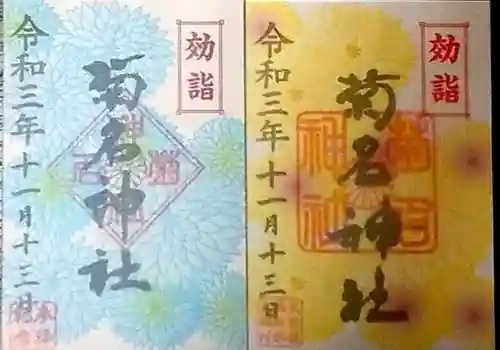 効詣
菊名神社
令和三年十一月十三日
効詣
菊名神社
令和三年十一月十三日